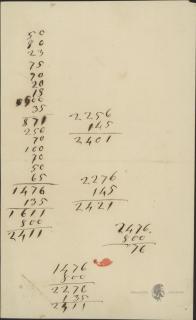 50
80
23
75
70
20
18
500
35
871
250
70
100
70
50
65
1476
135
1611
800
2411
2256
145
2401
2276
145
2421
2476
800
76
1476
800
2276
135
2411